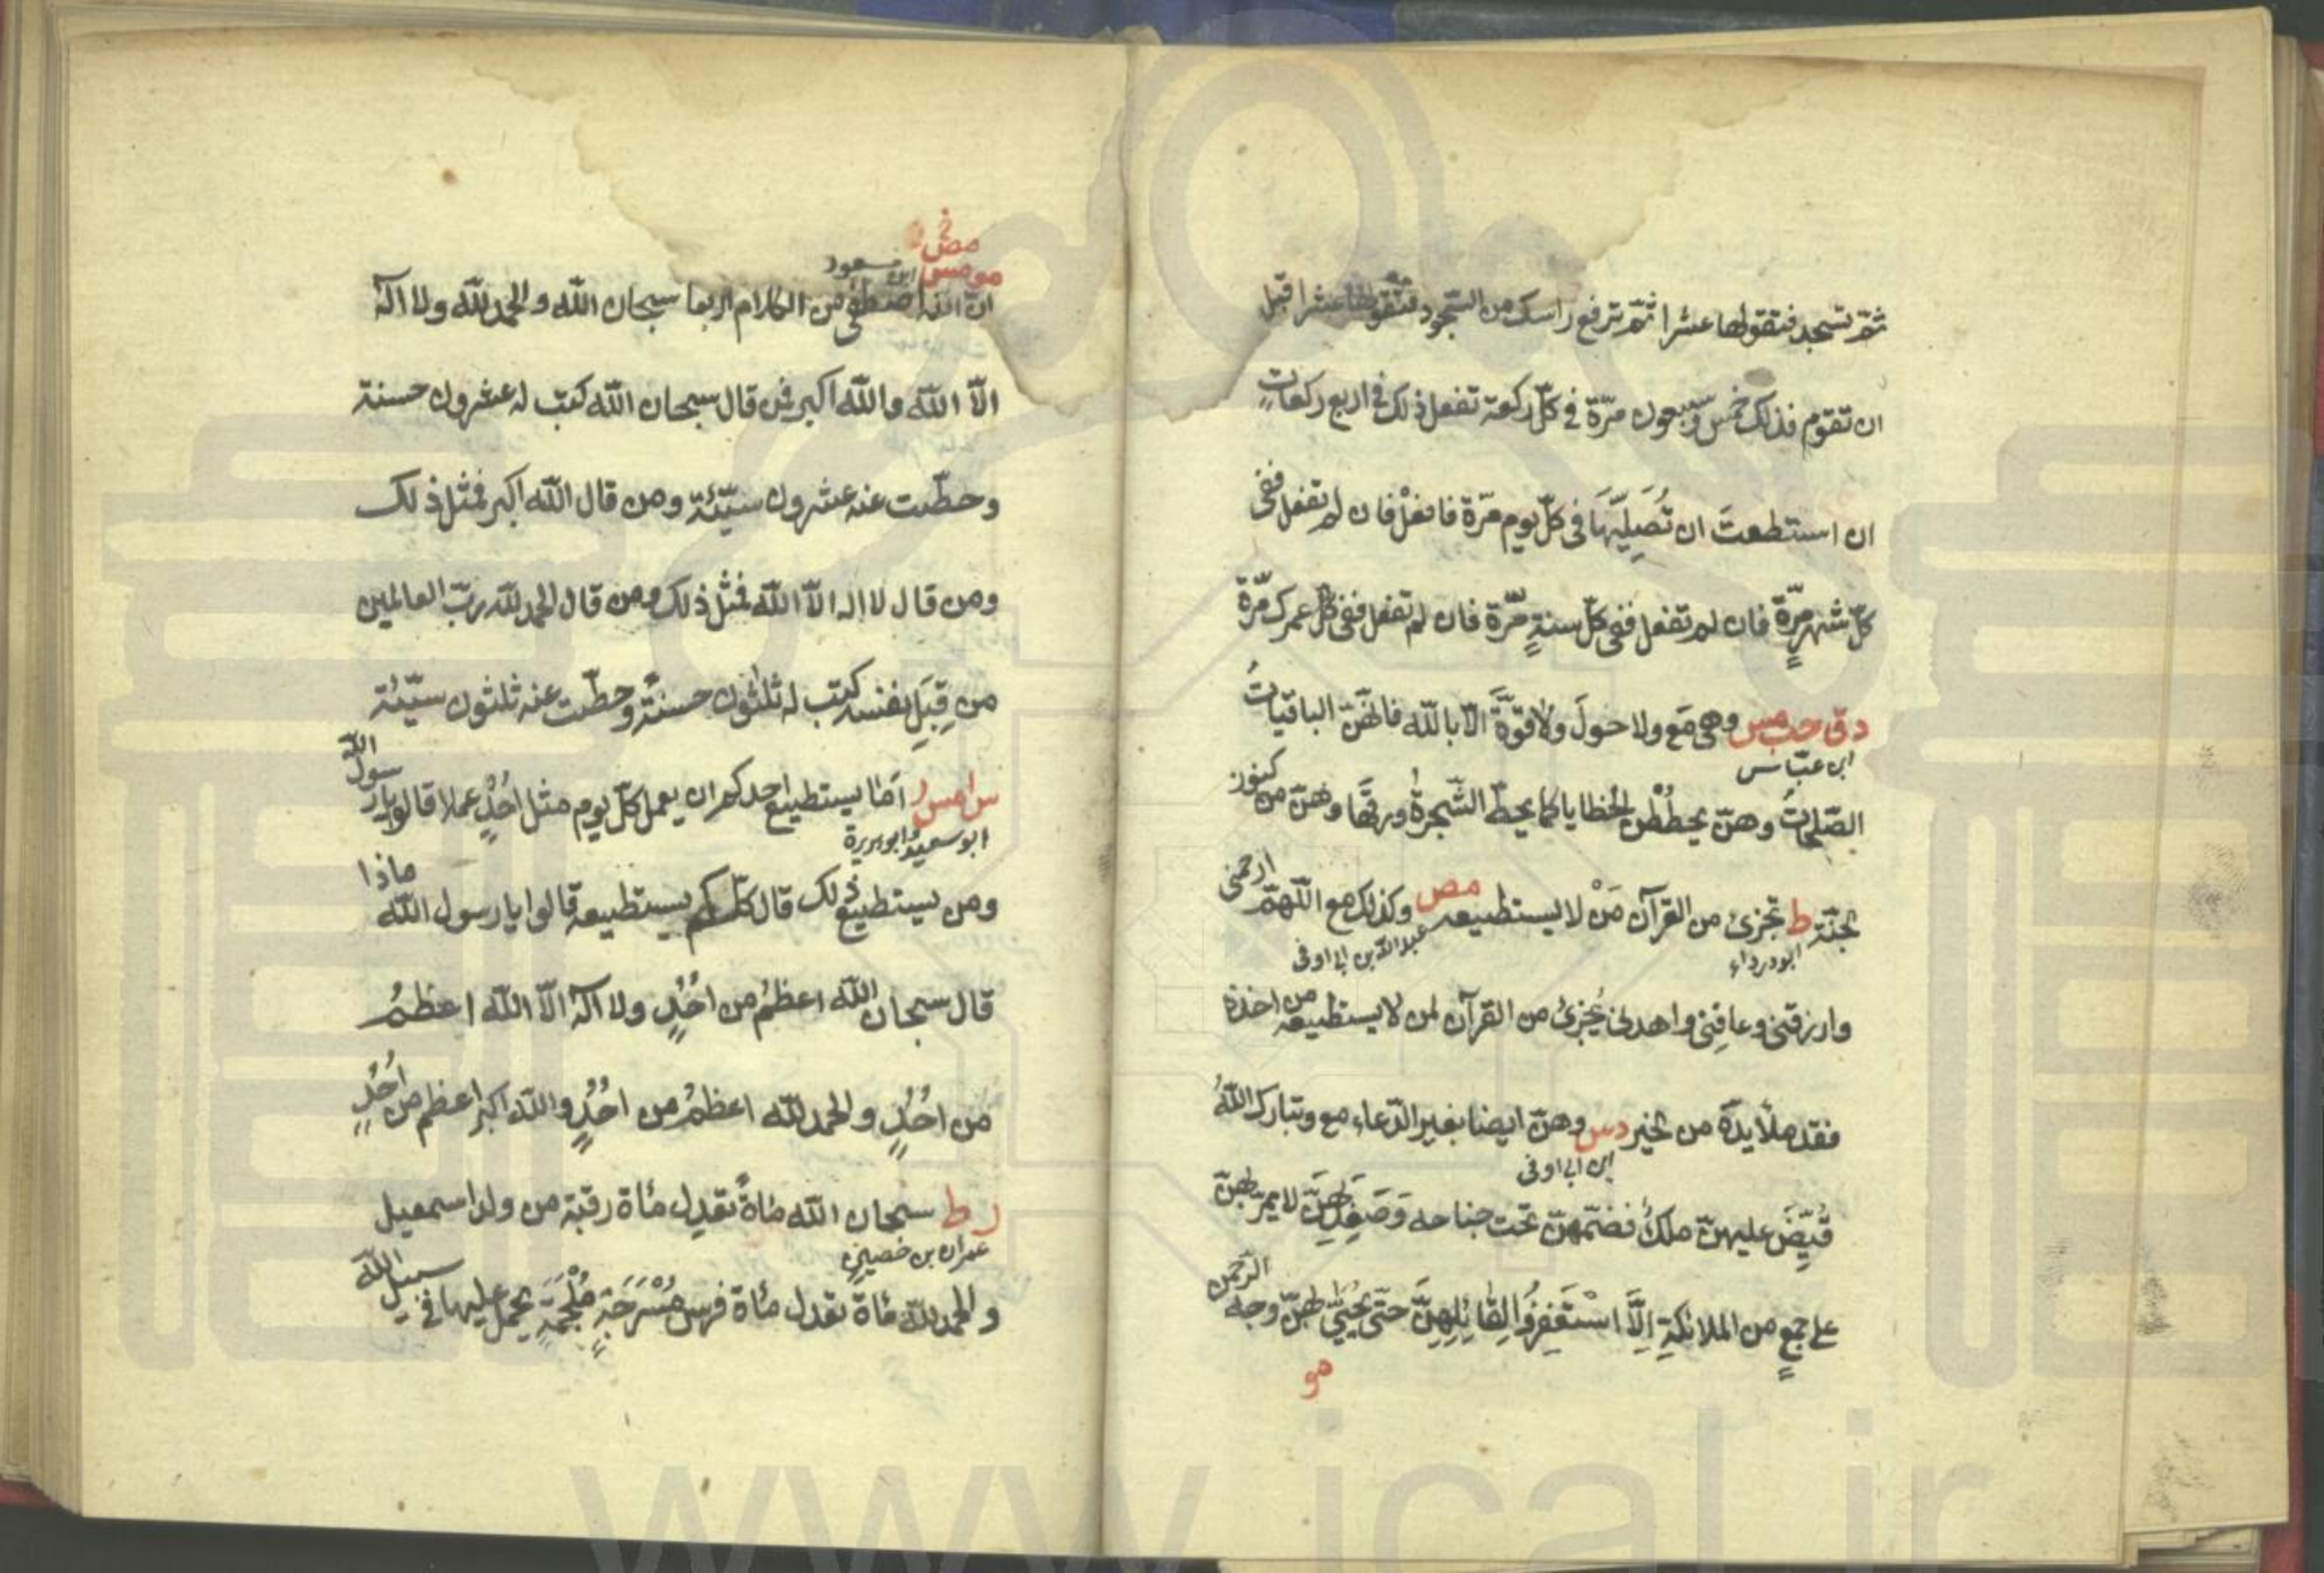 ثمّ تسجد فتقولها عشرا ثمّ ترفع راسك من السّجود فتقولها عشرا قبل
ان تقوم فذلك خمس وسبعون مرّة في كلّ ركعة تفعل ذلك في اربع ركعاتٍ
ان استطعتَ ان تُصَلِيَّهَا فى كلّ يوم مرّة فافعلْ فان لم تفعل ففى
كلّ شهرٍ مرّة فان لم تفعل ففى كلّ سنةٍ مرّة فان لم تفعل ففى كلّ عمرك مرّة
دق حب مس وهى مع ولا حولَ ولا قوّةَ الّا بالله فانّهنّ الباقياتُ
ابن عبّاس
الصّلحاتُ وهنّ يحطُطْن الخطايا كما يحطّ الشّجرةُ ورقها وهنّ من كنوز
الجنّة ط تجزئ من القرآن مَنْ لا يستطيعه مص وكذلك مع اللّهمّ ارحمنى
ابودرداء عبدالله بن ابى اوفى
وارزقنى وعافِنى واهدنى يُجزئ من القرآن لمن لا يستطيعه من اخذه
فقد ملأ يده من الخير دس وهنّ ايضا بغير الدّعاء مع وتبارك اللّهُ
ابن ابى اوفى
قُيِّضَ عليهنّ ملكٌ فضمّهنّ تحت جناحه وَصَعِدَ بِهِنَّ لا يمرّ بهنّ
على جمعٍ من الملائكةِ اِلَّا اسْتَغْفِرُوا لِقَائِلِهِنَّ حتّى يُحَيّى بهنّ وجه الرّحمن
مو
مص
مو مس ابن مسعود
انّ الله اصطفى من الكلام اربعا سبحان الله والحمد لله ولا اله
الّا الله والله اكبر فمن قال سبحان الله كتب له عشرون حسنة
وحطّت عنه عشرون سيّئة ومن قال الله اكبر فمثل ذلك
ومن قال لا اله الّا الله فمثل ذلك ومن قال الحمد لله ربّ العالمين
من قِبَلِ نفسه كتب له ثلثون حسنةً وحطّت عنه ثلثون سيّئة
س ا مس ر امّا يستطيع احدكم ان يعمل كلّ يوم مثل اُحُدٍ عملا قالوا يا رسول الله
ابو سعيد وابو هريرة
ومن يستطيع ذلك قال كلّكم يستطيعه قالوا يا رسول الله ماذا
قال سبحان الله اعظمُ من اُحُدٍ ولا اله الّا الله اعظمُ
من اُحُدٍ والحمد لله اعظمُ من اُحُدٍ والله اكبر اعظم من اُحُدٍ
ر ط سبحان الله مائةً تعدِل مائة رقبة من ولد اسمعيل
عمران بن حصين
والحمد لله مائة تعدل مائة فرس مُسْرَجَةٍ مُلْجَمَةٍ يحمل عليها فى سبيل الله
www.ical.ir